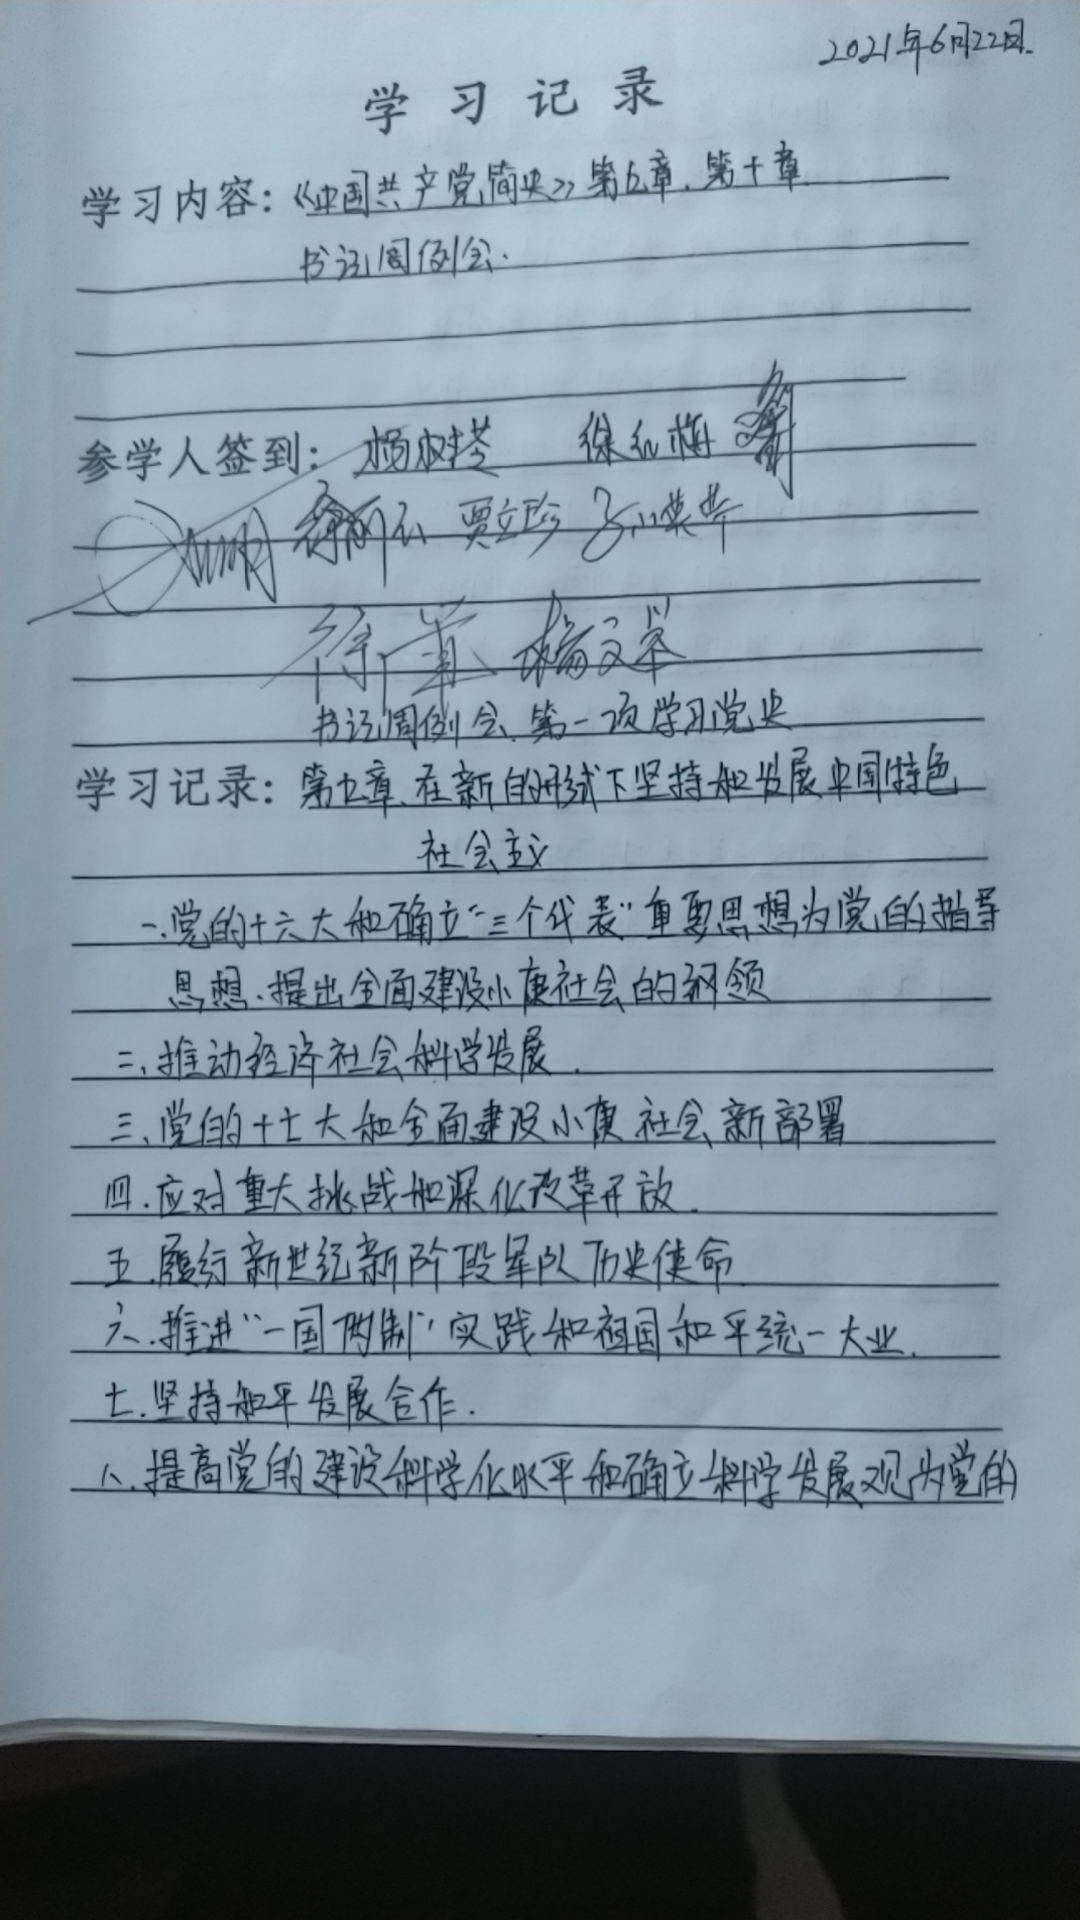 2021年6月22日.
学习记录
学习内容：《中国共产党简史》第九章、第十章
书记周例会.
参学人签到： 徐红梅
贾立珍
杨文翠
书记周例会、第一项学习党史
学习记录：第九章、在新的形式下坚持和发展中国特色
社会主义
一、党的十六大和确立“三个代表”重要思想为党的指导
思想、提出全面建设小康社会的纲领
二、推动经济社会科学发展.
三、党的十七大和全面建设小康社会新部署
四.应对重大挑战和深化改革开放.
五.履行新世纪新阶段军队历史使命
六.推进“一国两制”实践和祖国和平统一大业.
七.坚持和平发展合作.
八.提高党的建设科学化水平和确立科学发展观为党的